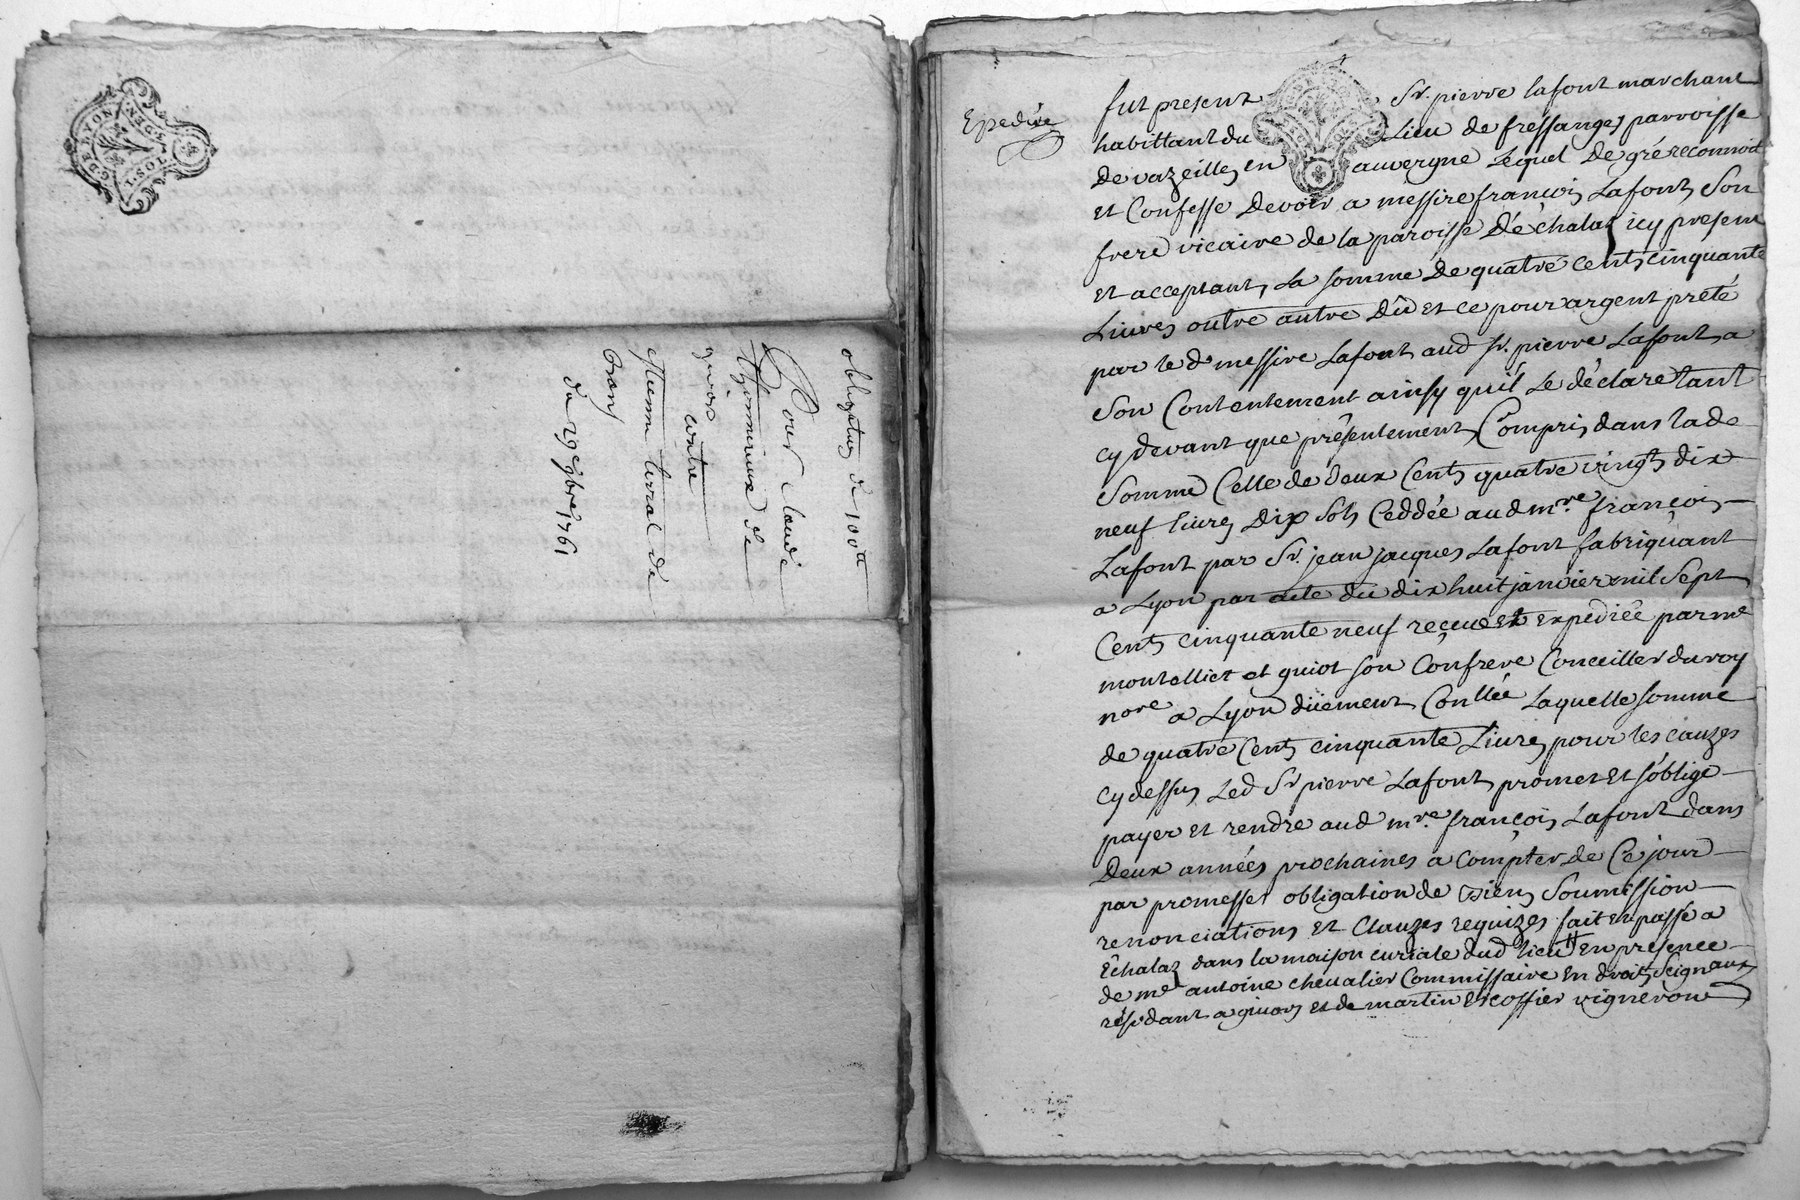 GDE LYON
GEN
1. SOL
obligation de 100tt
Pour Claude
Thomine de
givors
contre
estienne de
du 29e 9bre 1761
Expediée
fut present Sr. pierre lafont marchant
habittant du Lieu de fressanges parroisse
de vazeilles en auvergne Lequel de gré reconnoit
et Confesse devoir a messire francois Lafont, Son
frere vicaire de la paroisse d'échalaz icy present
et acceptant, La somme de quatre cents cinquante
Livres outre autre dû et ce pour argent prêté
par le d. messire Lafont aud Sr. pierre Lafont, a
Son Contentement ainsy qu'il Le déclare tant
cy devant que présentement, Compris dans lad.
Somme Celle de deux Cents quatre vingts dix
neuf livres dix sols Ceddée aud mre. françois
Lafont par Sr. jean jacques Lafont fabriquant
a Lyon par acte du dix huit janvier mil Sept
Cents cinquante neuf reçue et expediée par me
montelliet et guiot son Confrere Conceiller du roy
nore a Lyon düement Conllée Laquelle somme
de quatre Cents cinquante Livres pour les cauzes
cy dessus Led Sr pierre Lafont, promet et s'oblige
payer et rendre aud mre. françois Lafont dans
Deux années prochaines a Compter de Ce jour
par promesses obligation de biens Soumission
renonciations et Clauzes requizes fait et passé a
Echalaz dans la maison curiale dud lieu # En presence
de me antoine chevalier Commissaire En droits Seignaux
résidant a givors et de martin Escoffier vigneron